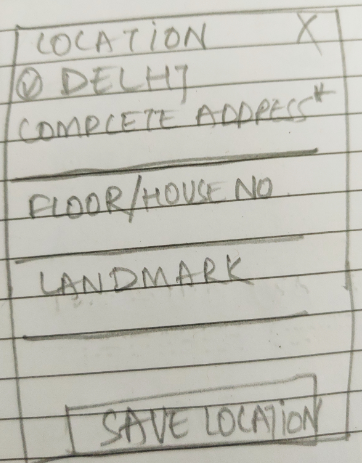 LOCATION X
DELHI
COMPLETE ADDRESS*
FLOOR/HOUSE NO
LANDMARK
SAVE LOCATION